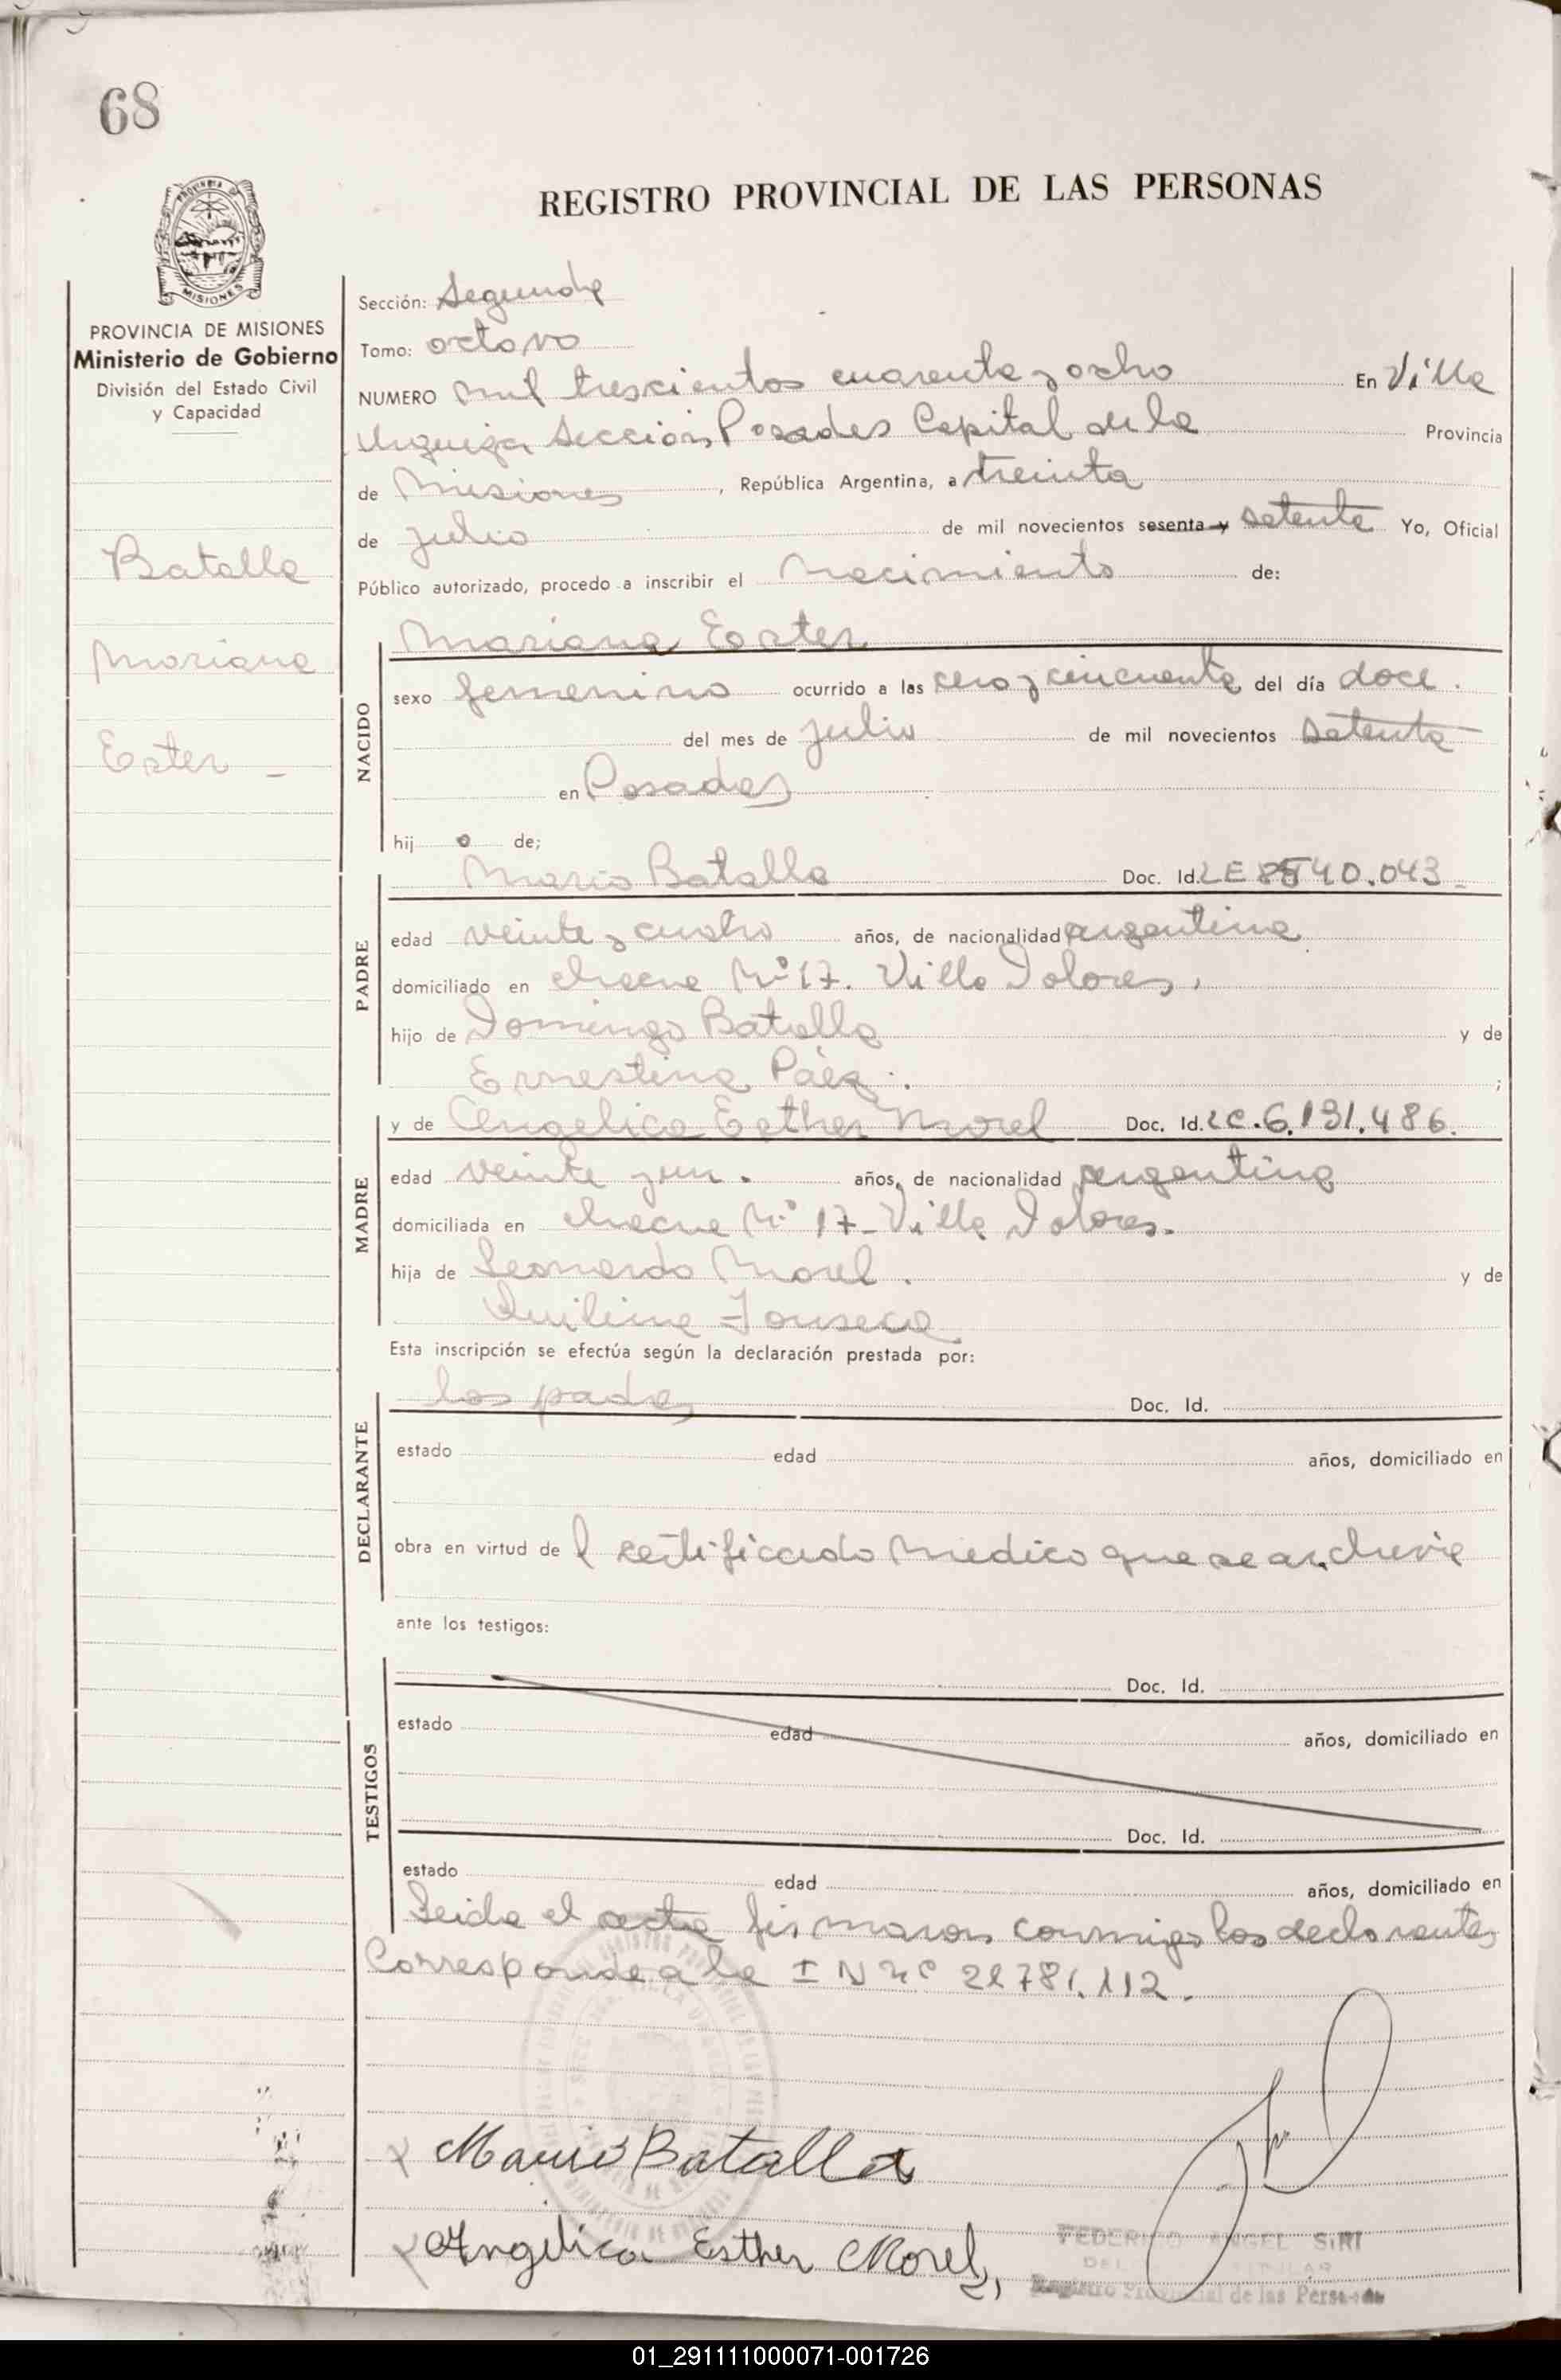 68
MISIONES
PROVINCIA DE MISIONES
Ministerio de Gobierno
División del Estado Civil
y Capacidad
Batalla
Mariana
Ester -
REGISTRO PROVINCIAL DE LAS PERSONAS
Sección: Segunda
Tomo: octavo
NUMERO mil trescientos cuarenta y ocho En Villa
Urquiza Sección Posadas Capital de la Provincia
de Misiones, República Argentina, a treinta
de julio de mil novecientos sesenta y setenta Yo, Oficial
Público autorizado, procedo a inscribir el nacimiento de:
NACIDO
Mariana Ester
sexo femenino ocurrido a las cero y cincuenta del día doce.
del mes de julio de mil novecientos setenta
en Posadas
hij a de;
PADRE
Mario Batalla Doc. Id. LE 8540.043_
edad veinte y cuatro años, de nacionalidad argentina
domiciliado en chacra Nº 17. Villa Dolores.
hijo de Domingo Batalla y de
Ernestina Páez. ;
MADRE
y de Angelica Esther Morel Doc. Id. LC.6.131.486.
edad veinte y un. años, de nacionalidad argentina
domiciliada en chacra Nº 17_ Villa Dolores.
hija de Leonardo Morel. y de
Fonseca
Esta inscripción se efectúa según la declaración prestada por:
DECLARANTE
los padres Doc. Id.
estado edad años, domiciliado en
obra en virtud de l certificado medico que se archiva
ante los testigos:
TESTIGOS
Doc. Id.
estado edad años, domiciliado en
Doc. Id.
estado edad años, domiciliado en
Leida el acta firmaron conmigo los declarantes
Corresponde a la I N nº 21781.112.
Mario Batalla
Angelica Esther Morel,
FEDERICO ANGEL SIRI
Registro Provincial de las Personas
01_291111000071-001726